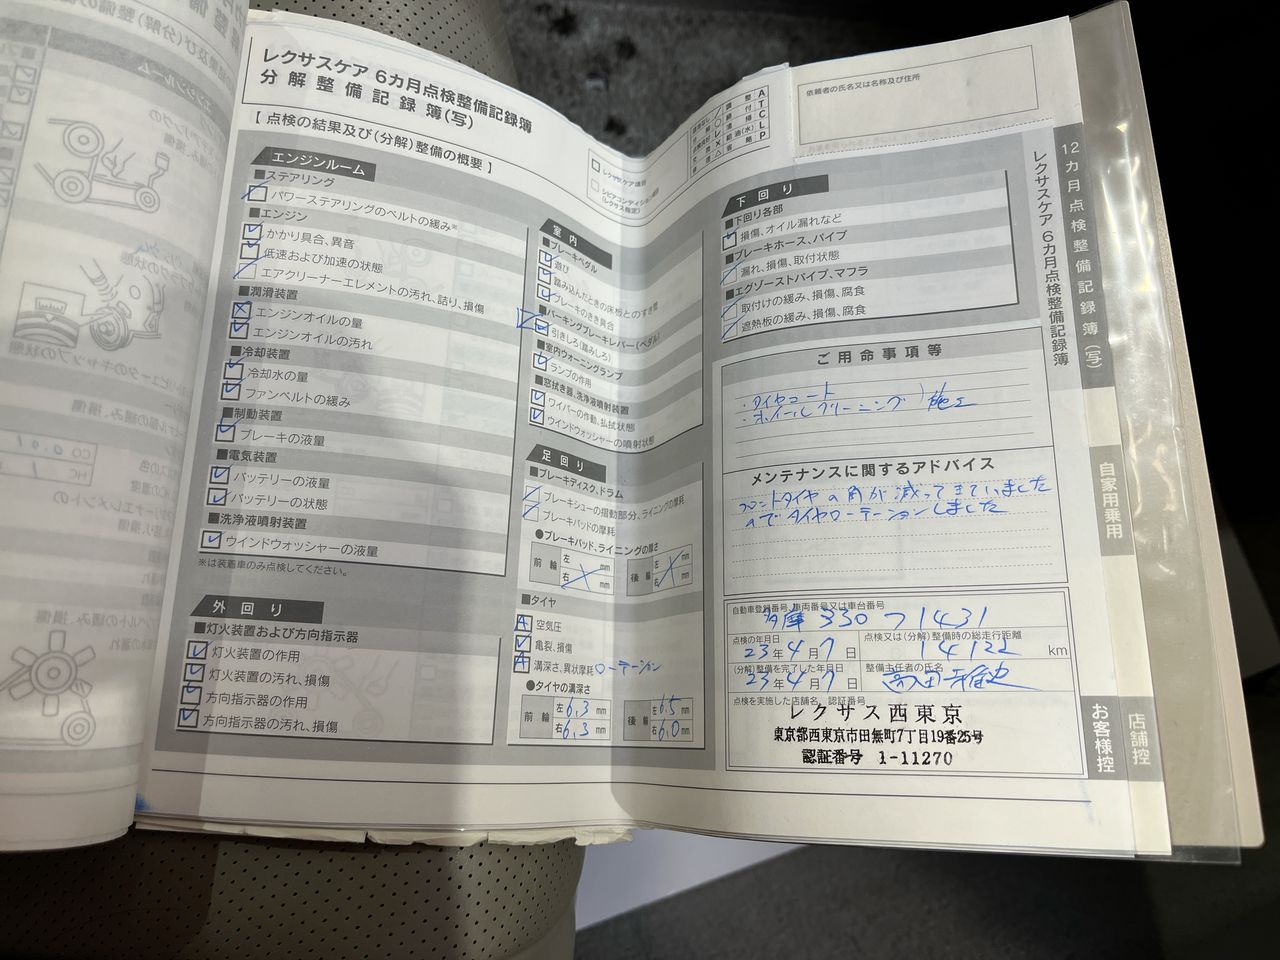 レクサスケア 6カ月点検整備記録簿
分解整備記録簿(写)
【 点検の結果及び(分解)整備の概要 】
エンジンルーム
■ステアリング
パワーステアリングのベルトの緩み※
■エンジン
かかり具合、異音
低速および加速の状態
エアクリーナーエレメントの汚れ、詰り、損傷
■潤滑装置
エンジンオイルの量
エンジンオイルの汚れ
■冷却装置
冷却水の量
ファンベルトの緩み
■制動装置
ブレーキの液量
■電気装置
バッテリーの液量
バッテリーの状態
■洗浄液噴射装置
ウインドウォッシャーの液量
※は装着車のみ点検してください。
外回り
■灯火装置および方向指示器
灯火装置の作用
灯火装置の汚れ、損傷
方向指示器の作用
方向指示器の汚れ、損傷
レクサスケア項目
室内
■ブレーキペダル
遊び
踏み込んだときの床板とのすき間
ブレーキのきき具合
■パーキングブレーキレバー(ペダル)
引きしろ(踏みしろ)
■室内ウォーニングランプ
ランプの作用
■窓拭き器、洗浄液噴射装置
ワイパーの作動、払拭状態
ウインドウォッシャーの噴射状態
足回り
■ブレーキディスク、ドラム
ブレーキシューの摺動部分、ライニングの摩耗
ブレーキパッドの摩耗
●ブレーキパッド、ライニングの厚さ
前輪 左 mm 右 mm 後輪 左 mm 右 mm
■タイヤ
A 空気圧
亀裂、損傷
A 溝深さ、異状摩耗 ローテーション
●タイヤの溝深さ
前輪 左 6.3 mm 後輪 左 6.5 mm
右 6.3 mm 右 6.0 mm
調整 A
締付 T
清掃 C
給油(水) L
省略 P
依頼者の氏名又は名称及び住所
下回り
■下回り各部
損傷、オイル漏れなど
■ブレーキホース、パイプ
漏れ、損傷、取付状態
■エグゾーストパイプ、マフラ
取付けの緩み、損傷、腐食
遮熱板の緩み、損傷、腐食
ご用命事項等
・タイヤコート
・ホイールクリーニング 施工
メンテナンスに関するアドバイス
フロントタイヤの角が減ってきていました
のでタイヤローテーションしました
自動車登録番号、車両番号又は車台番号
多摩 330 つ 1431
点検の年月日 点検又は(分解)整備時の総走行距離
23年4月7日 14122 km
(分解)整備を完了した年月日 整備主任者の氏名
23年4月7日
点検を実施した店舗名、認証番号
レクサス西東京
東京都西東京市田無町7丁目19番25号
認証番号 1-11270
12カ月点検整備記録簿(写)
レクサスケア 6カ月点検整備記録簿
自家用乗用
お客様控
店舗控
CO 0.01
HC 1